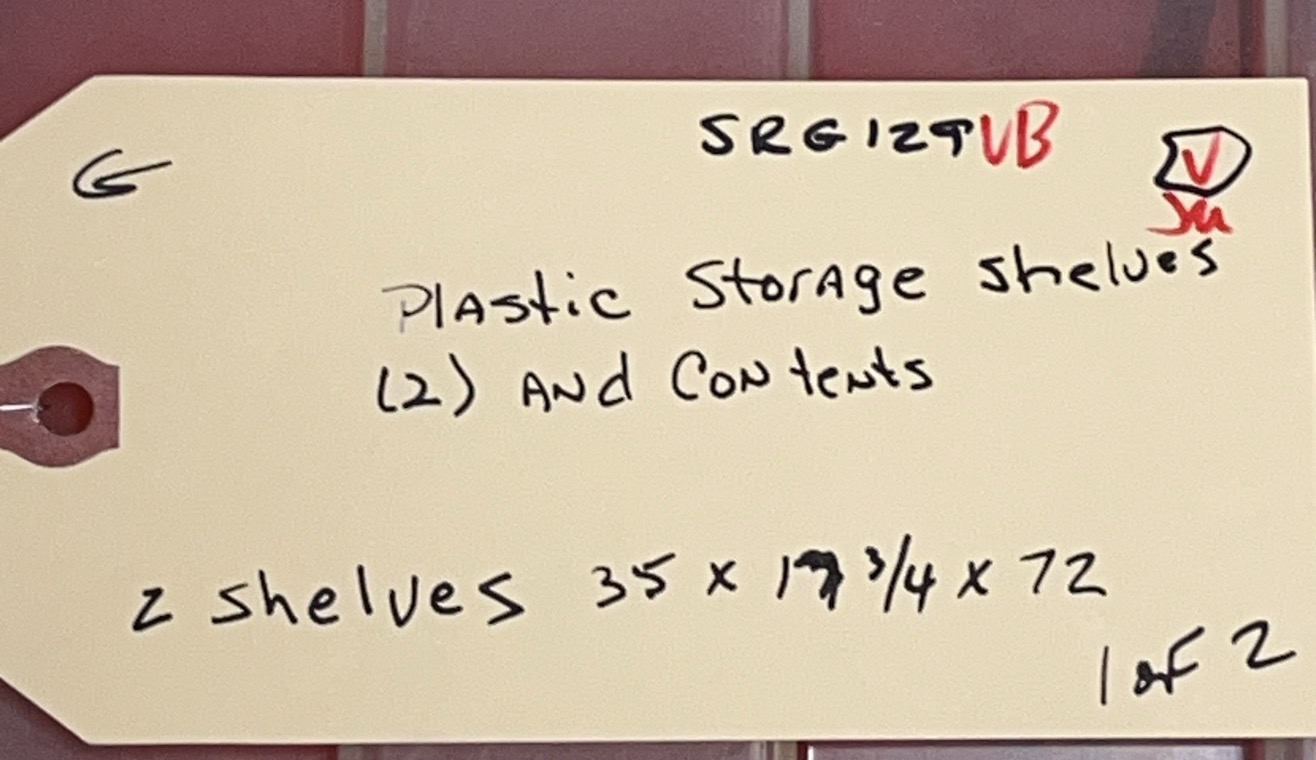 SRG129VB
V
Plastic Storage shelves
(2) AND CONtents
2 shelves 35 x 17 3/4 x 72
1 of 2